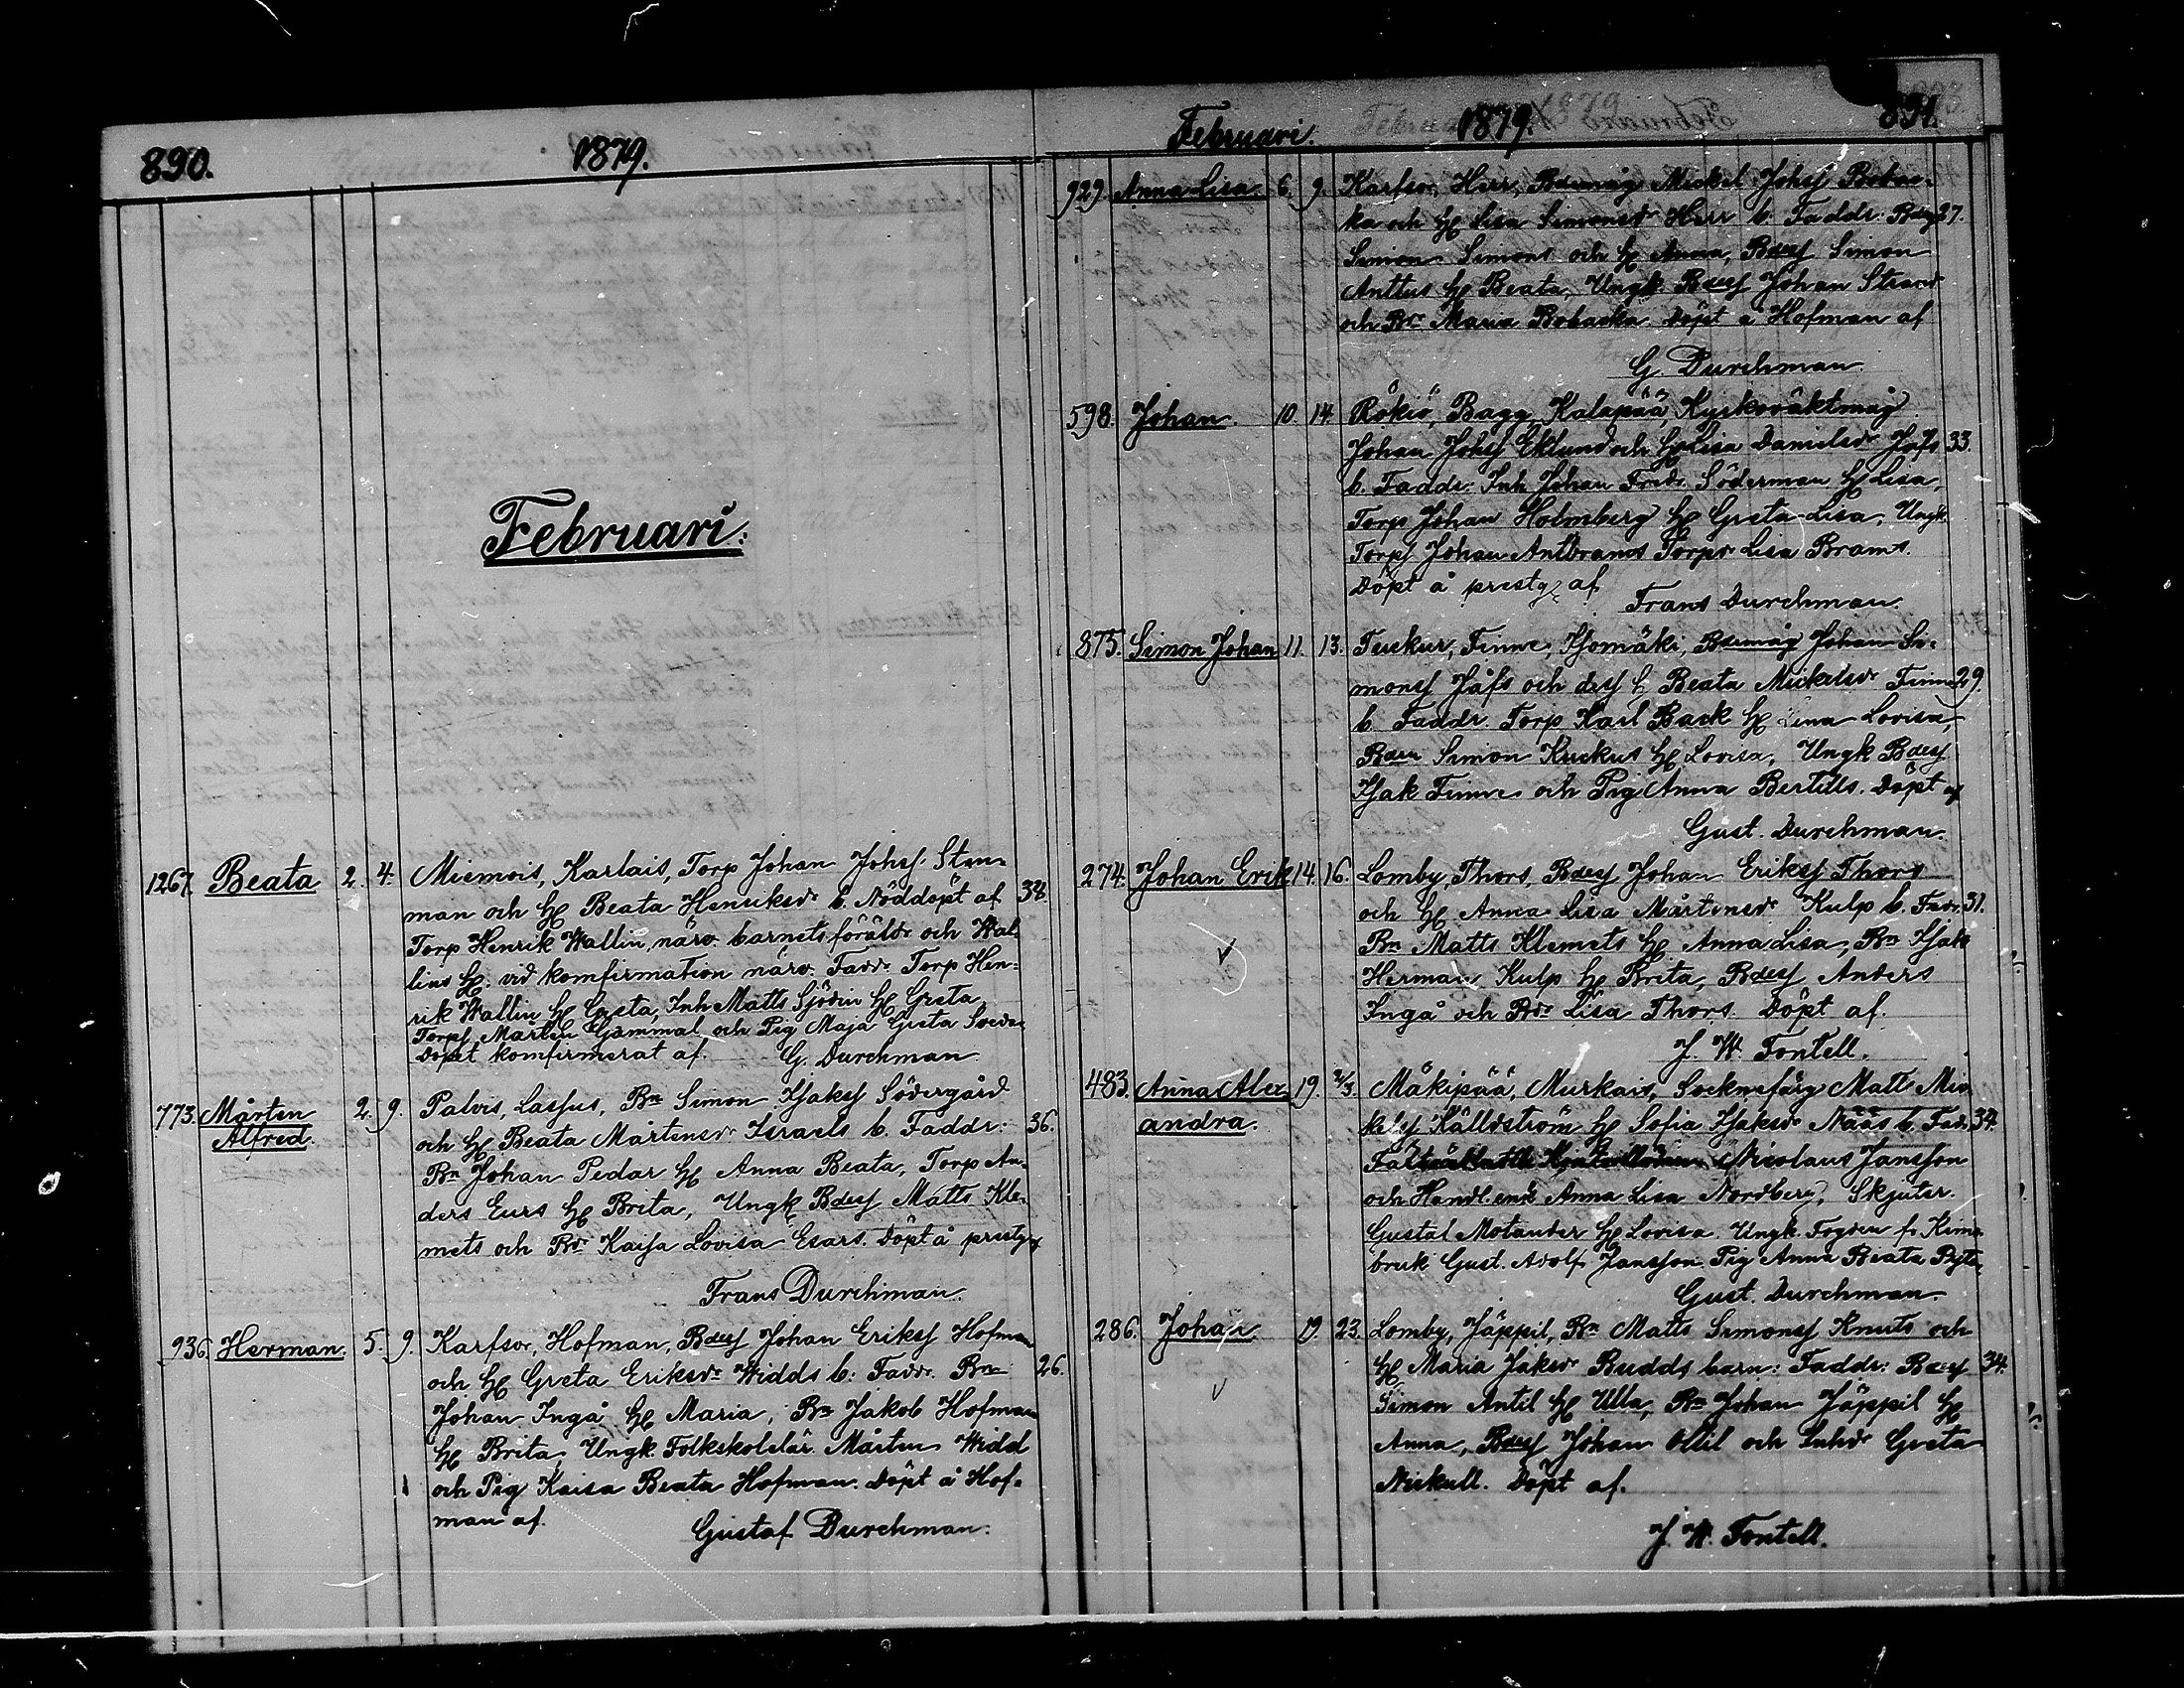 890. 1879.
Februari.
1267. Beata 2. 4. Miemois, Karlais, Torp Johan Johsf. Sten-
man och H. Beata Henriksdr b. Nöddöpt af 34.
Torp Henrik Wallin, närv. barnets föräldr och Wal-
lins H. vid komfirmation närv. Faddr. Torp Hen-
rik Wallin H. Greta, Inh Matts Sjödin H. Greta
Torpf Mårten Gammal och Pig Maja Greta
Döpt komfirmerat af. G. Durchman
773. Mårten 2. 9. Palvis, Lassus, Bn Simon Isaksf Södergård
Alfred. och H. Beata Mårtensdr Israels b. Faddr: 36.
Bn Johan Pedar H. Anna Beata, Torp An-
ders Eurs H. Brita, Ungk Bdesf Matts Kle-
mets och Bdr Kajsa Lovisa Esars. Döpt å prestg af
Frans Durchman.
936. Herman. 5. 9. Karfsor, Hofman, Bdesf Johan Eriksf Hofman
och H. Greta Eriksdr Widds b: Faddr. Bn 26.
Johan Ingå H. Maria, Bn Jakob Hofman
H. Brita, Ungk. Folkskolelär. Mårten Widd
och Pig Kaisa Beata Hofman. Döpt å Hof-
man af.
Gustaf Durchman.
Februari. 1879. 891.
929. Anna Lisa 6. 9. Karfsor, Herr, Bdemåg Mickel Johsf Bobac-
ka och H. Lisa Simonsdr Herr b. Faddr: 27.
Simon Simons och H. Anna, Bdesf Simon
Anttus H. Beata, Ungk. Bdesf Johan Strand
och Bdr Maria Bobacka. Döpt å Hofman af
G. Durchman.
598. Johan. 10. 14. Rökiö, Bagg, Kalapää, Kyrkovåktmåg
Johan Johsf Eklund och H. Lisa Danielsdr Jåfs 33.
b. Faddr: Inh Johan Fredr. Söderman H. Lisa,
Torp Johan Holmberg H. Greta Lisa, Ungk.
Torpf Johan Antbrams Torpdr Lisa Brams.
Döpt å prestg. af
Frans Durchman.
875. Simon Johan 11. 13. Tuckur, Finne, Isomäki, Bdemåg Johan Si-
monsf Jåfs och desf h. Beata Mickelsdr Finne 29.
b. Faddr Torp Karl Back H. Lina Lovisa,
Bden Simon Kuckus H. Lovisa, Ungk Bdesf
Isak Finne och Pig Anna Bertills. Döpt af
Gust. Durchman.
274. Johan Erik 14. 16. Lomby, Thors, Bdesf Johan Eriksf Thors
och H. Anna Lisa Mårtensdr Kulp b. Faddr. 31.
Bn Matts Klemets H. Anna Lisa, Bn Isak
Herman Kulp H. Brita, Bdesf Anders
Ingå och Bdr Lisa Thors. Döpt af.
J. W. Fontell.
483. Anna Alex- 19. 2/3. Mäkipää, Murkais, Socknefärg Matts Mic-
andra. kelsf Källdström H. Sofia Isaksdr Nääs b. Fad. 34.
Nicolaus Jansson
och Handl. enk Anna Lisa Nordberg, Skjuter.
Gustaf Motander H. Lovisa. Ungk. Fogden f. Kimo
bruk Gust. Adolf Jansson Pig Anna Beata
Gust. Durchman.
286. Johan 19. 23. Lomby, Jäppil, Bn Matts Simonsf Knuts och
H. Maria Jaksdr Budds barn: Faddr: Bdesf 34.
Simon Antil H. Ulla, Bn Johan Jäppil H.
Anna, Bdesf Johan Ollil och Inhdr Greta
Nickull. Döpt af.
J. W. Fontell.